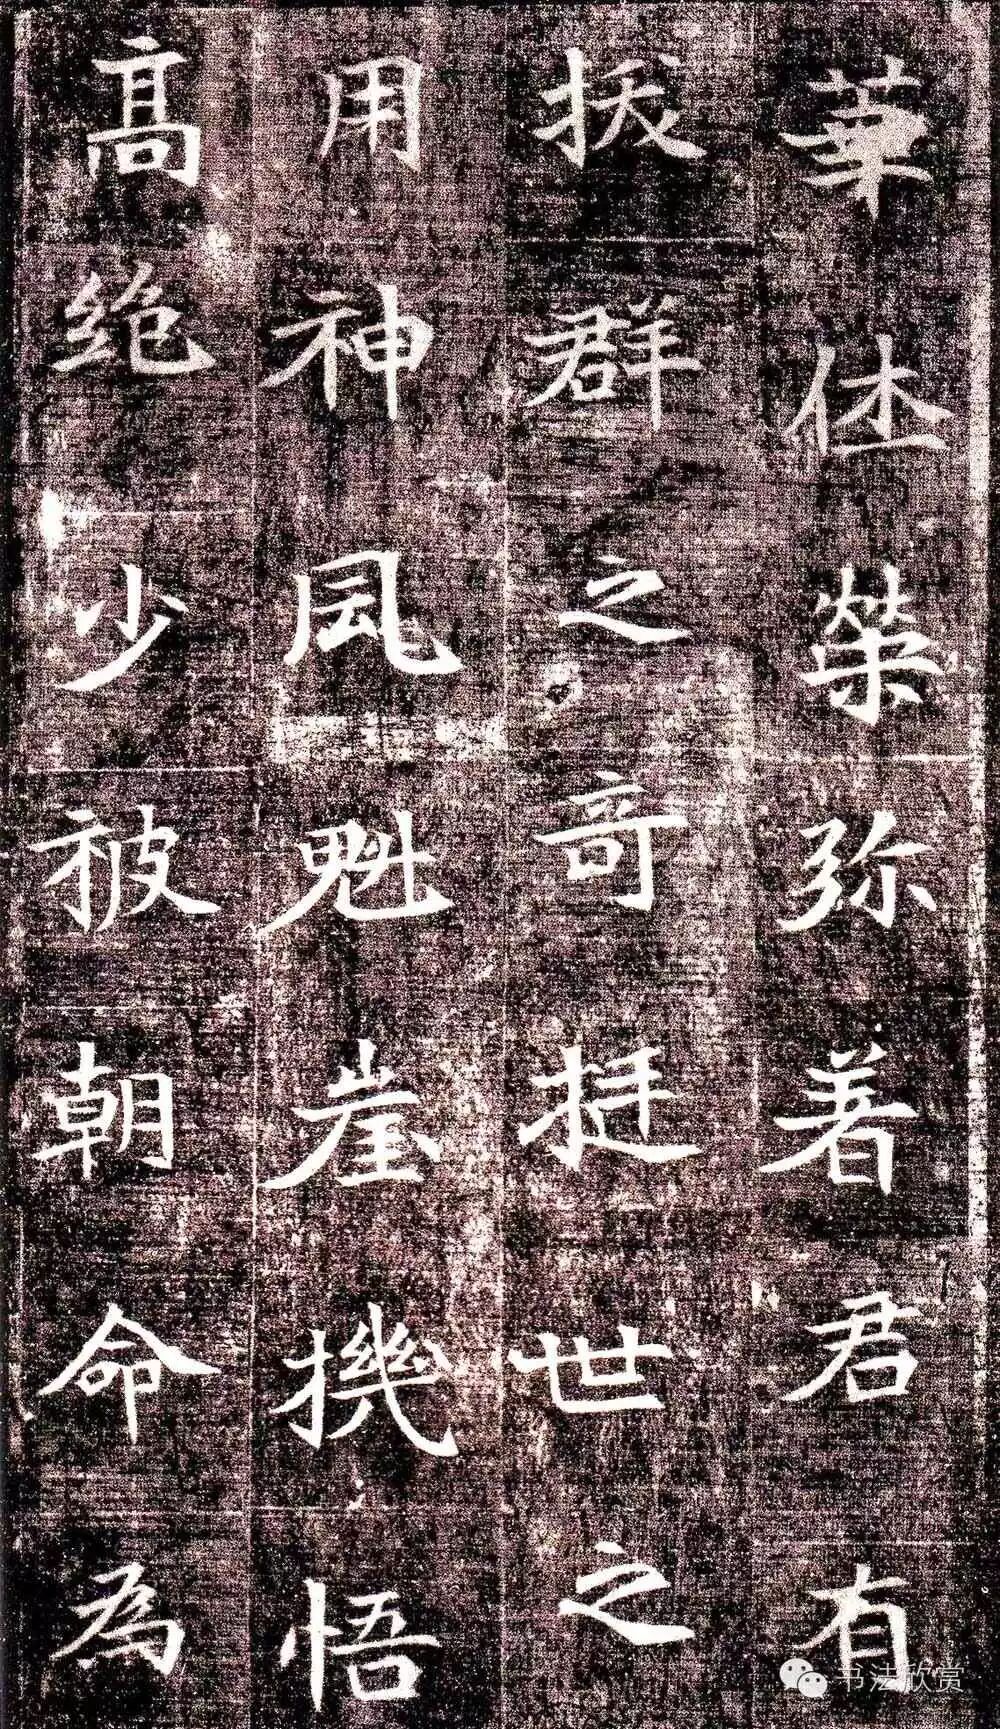 華体榮弥著君有
拔群之奇挺世之
用神風魁崖機悟
高絶少被朝命為
书法欣赏